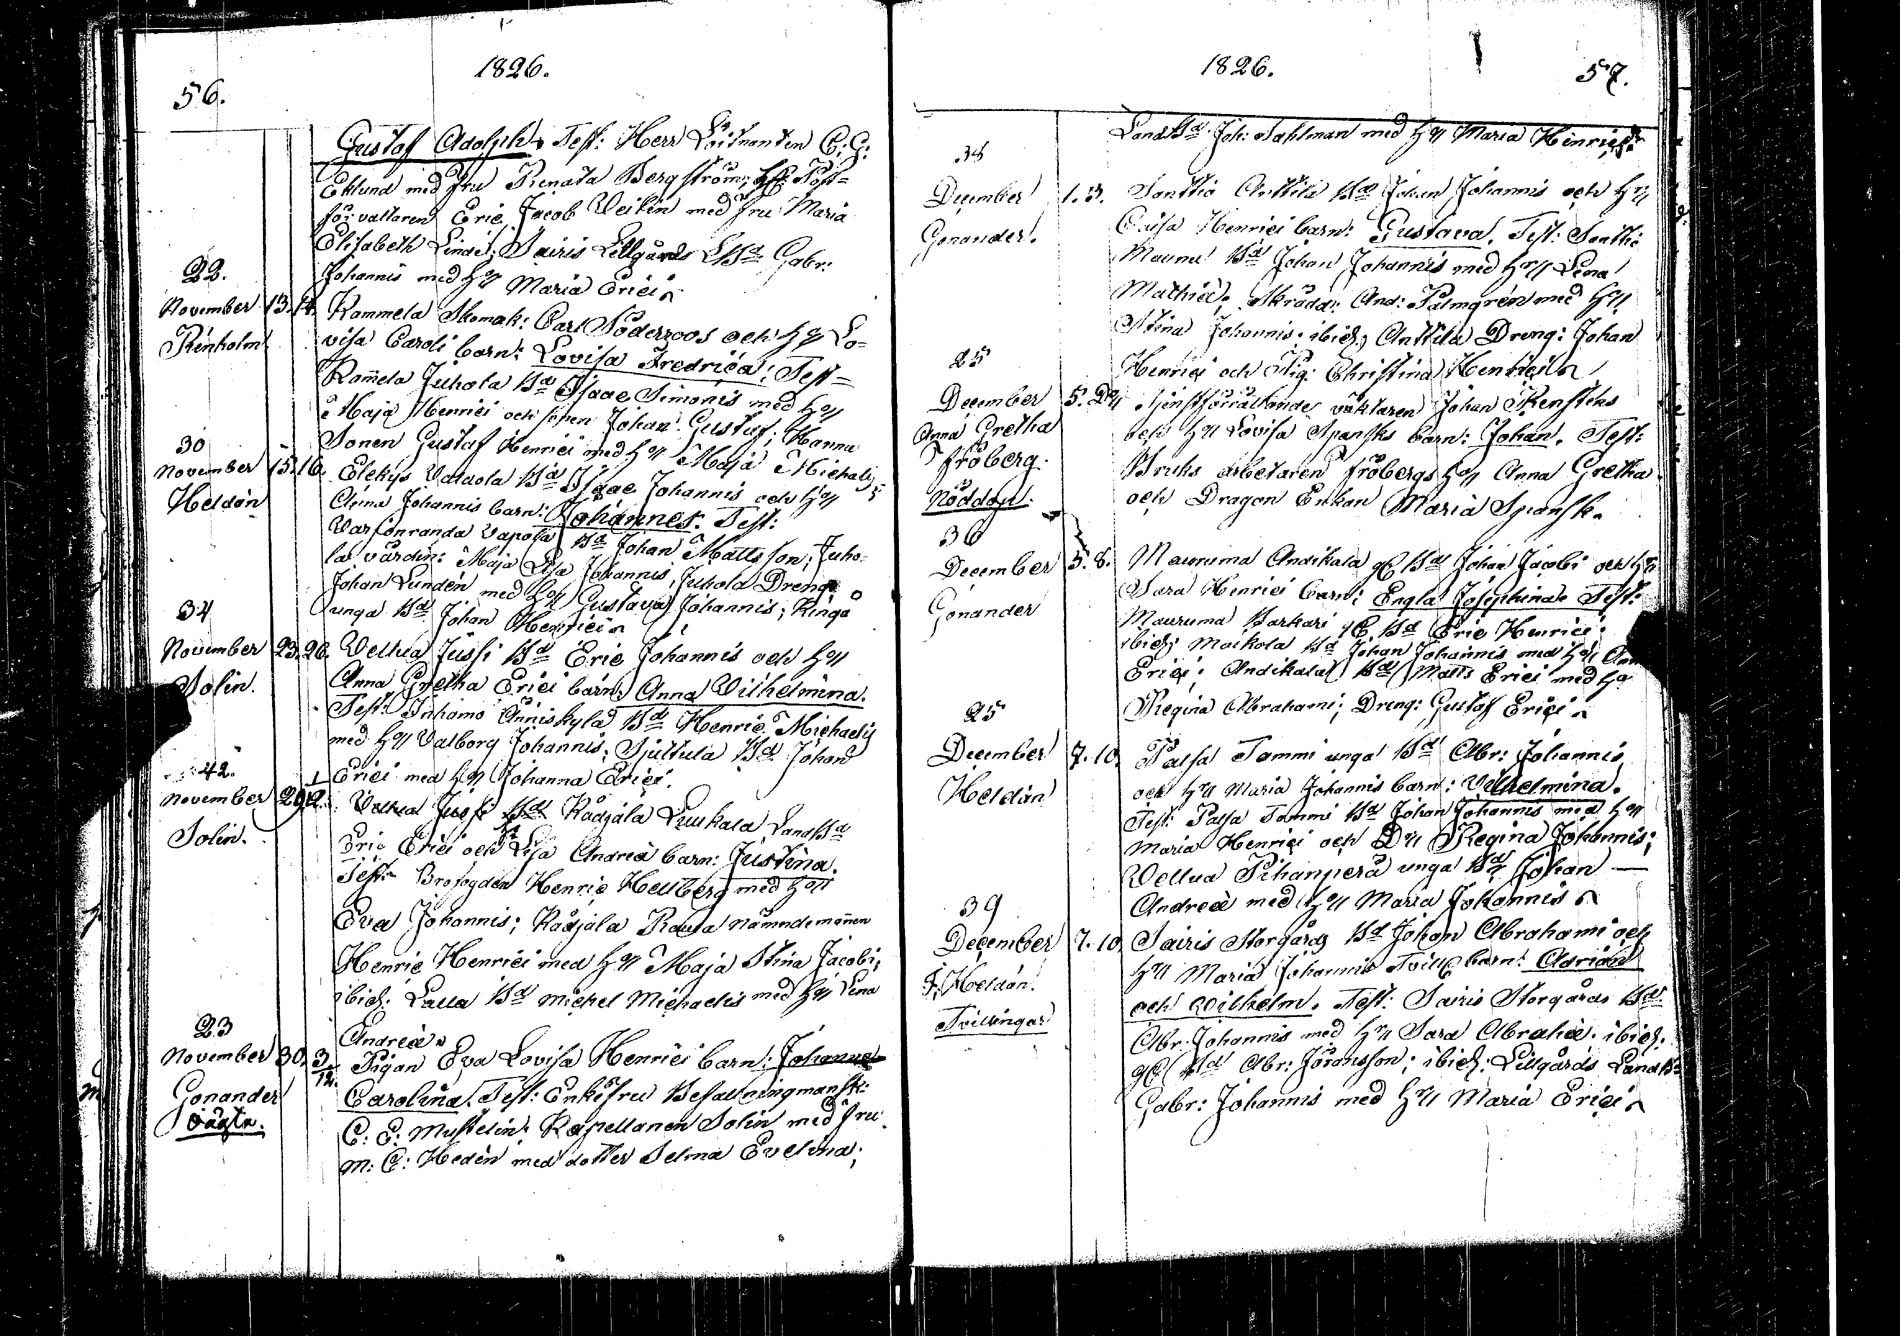 56.
1826.
Gustaf Adolph. Test: Herr Löitnanten C: G:
Eklund med fru Renata Bergström; Post=
förvaltaren Eric Jacob Veikin med fru Maria
Elisabeth Lindel; Sairis Lillgårds LBd Gabr:
22.
Johannis med hu Maria Erici
November 13. 14. Kammela Skomak: Carl Söderroos och hu Lo=
Renholm
visa Caroli barn: Lovisa Fredrica; Test=
Kam̄ela Juhola Bd Isaac Simonis med hu
Maja Henrici och sonen Johan Gustaf; Hanna
30
Sonen Gustaf Henrici med hu Maja Michaelis
November 15. 16. Elekys Bd Isaac Johannis och hu
Heldån
Johannis barn: Johannes. Test:
Vapola Bd Johan Mattsson; Juho=
la värdin: Maja Lisa Johannis, Juhola Dreng:
Johan Lunden med hu Gustava Johannis;
34
unga Bd Johan Henrici
November 23. 26. Vellua Jussi Bd Eric Johannis och hu
Solin.
Anna Gretha Erici barn: Anna Vilhelmina.
Test: Inhamo Änniskylä Bd Henric Michaelis
med hu Valborg Johannis; Sjuttula Bd Johan
42.
Erici med hu Johanna Erici.
November 29 Vellua Jussi Kådjala Luukala LandBd
Solin.
Eric Erici och Lisa Andreæ barn: Justina.
Test: Brofogden Henric Hellberg med hu
Eva Johannis; Kådjala Rauta nämndemannen
Henric Henrici med hu Maja Stina Jacobi;
ibid: Lalla Bd Michel Michaelis med hu Lena
23
Andreæ
November 30. 3/12. Pigan Eva Lovisa Henrici barn: Johanna
Gonander
Carolina. Test: Enkefru Befallningmansk:
oägta.
C: E: Mustelin; Kapellanen Solin med fru
M: C: Heden med dotter Selma Evelina;
1826.
57.
LandBd Joh: Sahlman med hu Maria Henrici
38
December 1. 3. Sonttio Anttila Bd Johan Johannis och hu
Gonander.
Caisa Henrici barn: Gustava. Test: Sonttio
Maunu Bd Johan Johannis med hu Lena
Mathiæ; Skrädd: And: Palmgren med hu
Stina Johannis; ibid; Anttila Dreng: Johan
25
Henrici och Pig: Christina Henrici
December 5. Tjenstförrättande väktaren Johan
Anna Gretha
och hu Lovisa Spansks barn: Johan. Test:
Fröberg.
Bruks arbetaren Fröbergs hu Anna Gretha
Nöddöpt.
och Dragon Enkan Maria Spansk.
36
December 5. 8. Mauruma Andikala Bd Johan Jacobi och hu
Gonander
Sara Henrici barn: Engla Josephina. Test:
Mauruma Barkari Bd Eric Henrici;
ibid; Maikola Bd Johan Johannis med hu
Erici; Andikala Bd Matts Erici med hu
25
Regina Abrahami; Dreng: Gustaf Erici
December 7. 10. Palsa Tammi unga Bd Abr: Johannis
Heldån
och hu Maria Johannis barn: Vilhelmina.
Test: Palsa Tammi Bd Johan Johannis med hu
Maria Henrici och Regina Johannis;
Vellua Pihanperä unga Bd Johan
39
Andreæ med hu Maria Johannis
December 7. 10. Sairis Storgårds Bd Johan Abrahami och
F. Heldån.
hu Maria Johannis Tvill barn: Adrian
Tvillingar
och Wilhelm. Test: Sairis Storgårds Bd
Abr: Johannis med hu Sara Abrahæ; ibid:
Bd Abr: Jöransson; ibid: Lillgårds LandBd
Gabr: Johannis med hu Maria Erici